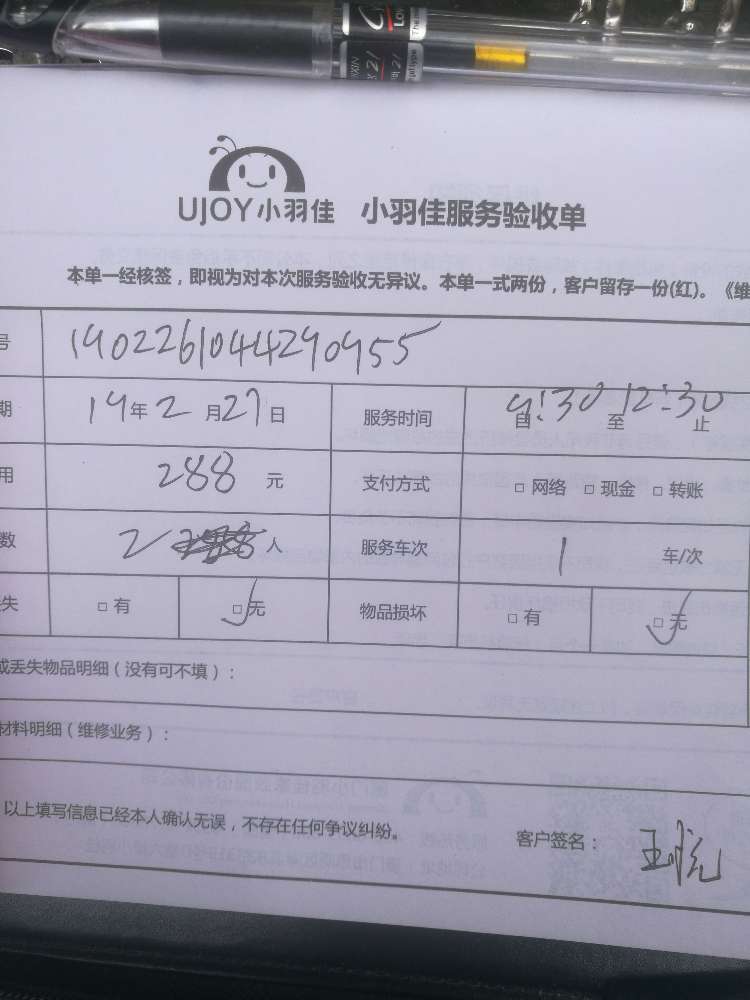 UJOY小羽佳 小羽佳服务验收单
本单一经核签，即视为对本次服务验收无异议。本单一式两份，客户留存一份(红)。《维
号 1902261044290955
期 19年2月27日 服务时间 自9:30至12:30止
用 288元 支付方式 □ 网络 □ 现金 □ 转账
数 2人 服务车次 1 车/次
失 □ 有 □ 无 物品损坏 □ 有 □ 无
或丢失物品明细（没有可不填）：
材料明细（维修业务）：
以上填写信息已经本人确认无误，不存在任何争议纠纷。 客户签名：